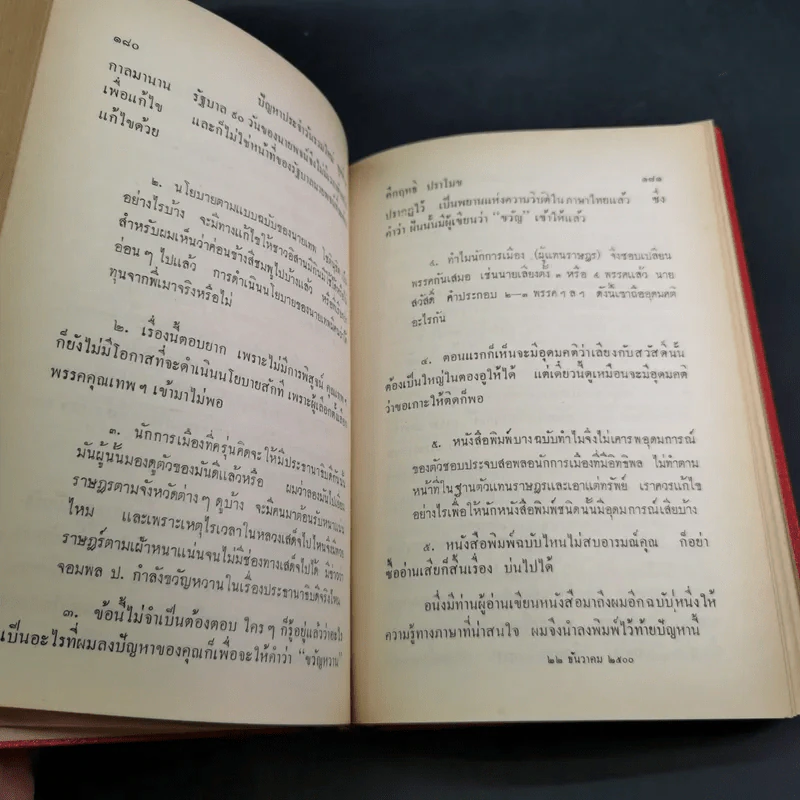 ๑๘๐
ปัญหาประจำวัน
กาลมานาน รัฐบาล ๙๐ วันของนายพจน์ซึ่งไม่
เพื่อแก้ไข และก็ไม่ใช่หน้าที่ของรัฐบาลนายพจน์
แก้ไขด้วย
๒. นโยบายตามแบบฉบับของนายเทพ
อย่างไรบ้าง จะมีทางแก้ไขให้ชาวอิสานมีกินมีใช้
สำหรับผมเห็นว่าค่อนข้างสีชมพูไปบ้างแล้ว หรือ
อ่อนๆ ไปแล้ว การดำเนินนโยบายของนายเทพ
ทุนจากพี่เมาจริงหรือไม่
๒. เรื่องนี้ตอบยาก เพราะไม่มีการพิสูจน์ คุณเทพฯ
ก็ยังไม่มีโอกาสที่จะดำเนินนโยบายสักที เพราะผู้เลือกตั้ง
พรรคคุณเทพฯ เข้ามาไม่พอ
๓. นักการเมืองที่ครุ่นคิดจะให้มีประธานาธิบดี
มันผู้นั้นมองดูตัวของมันดีแล้วหรือ ผมว่าลองมันไป
ราษฎรตามจังหวัดต่างๆ ดูบ้าง จะมีคนมาต้อนรับหนาแน่น
ไหม และเพราะเหตุไรเวลาในหลวงเสด็จไปไหนจึงมี
ราษฎร์ตามเฝ้าหนาแน่นจนไม่มีช่องทางเสด็จไปได้ มีข่าวว่า
จอมพล ป. กำลังขวัญหวานในเรื่องประธานาธิบดีจริงไหม
๓. ข้อนี้ไม่จำเป็นต้องตอบ ใครๆ ก็รู้อยู่แล้วว่าอะไร
เป็นอะไรที่ผมลงปัญหาของคุณก็เพื่อจะให้คำว่า “ขวัญหวาน”
คึกฤทธิ์ ปราโมช ๑๘๑
ปรากฏไว้ เป็นพยานแห่งความวิบัติใน ภาษาไทยแล้ว ซึ่ง
คำว่า ฝันนั้นมีผู้เขียนว่า “ขวัญ” เข้าให้แล้ว
๔. ทำไมนักการเมือง (ผู้แทนราษฎร) จึงชอบเปลี่ยน
พรรคกันเสมอ เช่นนายเลียงตั้ง ๓ หรือ ๔ พรรคแล้ว นาย
สวัสดิ์ คำประกอบ ๒—๓ พรรค ฯ ล ฯ ดังนี้เขาถืออุดมคติ
อะไรกัน
๔. ตอนแรกก็เห็นจะมีอุดมคติว่าเลียงกับสวัสดิ์นั้น
ต้องเป็นใหญ่ในตองอูให้ได้ แต่เดี๋ยวนี้ดูเหมือนจะมีอุดมคติ
ว่าขอเกาะให้ติดก็พอ
๕. หนังสือพิมพ์บางฉบับทำไมจึงไม่เคารพอุดมการณ์
ของตัวชอบประจบสอพลอนักการเมืองที่มีอิทธิพล ไม่ทำตาม
หน้าที่ในฐานตัวแทนราษฎรและเอาแต่ทรัพย์ เราควรแก้ไข
อย่างไรเพื่อให้นักหนังสือพิมพ์ชนิดนั้นมีอุดมการณ์เสียบ้าง
๕. หนังสือพิมพ์ฉบับไหนไม่สบอารมณ์คุณ ก็อย่า
ซื้ออ่านเสียก็สิ้นเรื่อง บ่นไปได้
อนึ่งมีท่านผู้อ่านเขียนหนังสือมาถึงผมอีกฉบับหนึ่งให้
ความรู้ทางภาษาที่น่าสนใจ ผมจึงนำลงพิมพ์ไว้ท้ายปัญหานี้
๒๒ ธันวาคม ๒๕๐๐